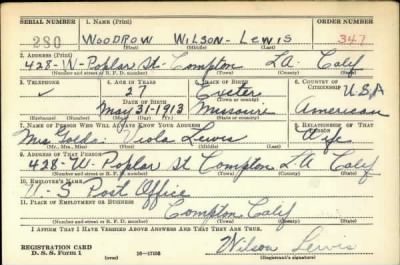 SERIAL NUMBER 1. NAME (Print) ORDER NUMBER
280 WOODROW WILSON - LEWIS 347
(First) (Middle) (Last)
2. ADDRESS (Print)
428-W-Poplar St- Compton LA. Calif
(Number and street or R. F. D. number) (Town) (County) (State)
3. TELEPHONE 4. AGE IN YEARS 5. PLACE OF BIRTH 6. COUNTRY OF CITIZENSHIP
✓ 27 Exeter U.S.A
DATE OF BIRTH (Town or county)
May 31-1913 Missouri American
(Mo.) (Day) (Yr.) (State or country)
7. NAME OF PERSON WHO WILL ALWAYS KNOW YOUR ADDRESS 8. RELATIONSHIP OF THAT PERSON
Mrs Viola Lewis Wife
(Mr., Mrs., Miss) (First) (Middle) (Last)
9. ADDRESS OF THAT PERSON
428-W. Poplar St Compton L.A Calif
(Number and street or R. F. D. number) (Town) (County) (State)
10. EMPLOYER'S NAME
U-S Post Office
11. PLACE OF EMPLOYMENT OR BUSINESS
Compton Calif
(Number and street or R. F. D. number) (Town) (County) (State)
I AFFIRM THAT I HAVE VERIFIED ABOVE ANSWERS AND THAT THEY ARE TRUE.
REGISTRATION CARD
D. S. S. Form 1 (over) 16-17105 Wilson Lewis
(Registrant's signature)